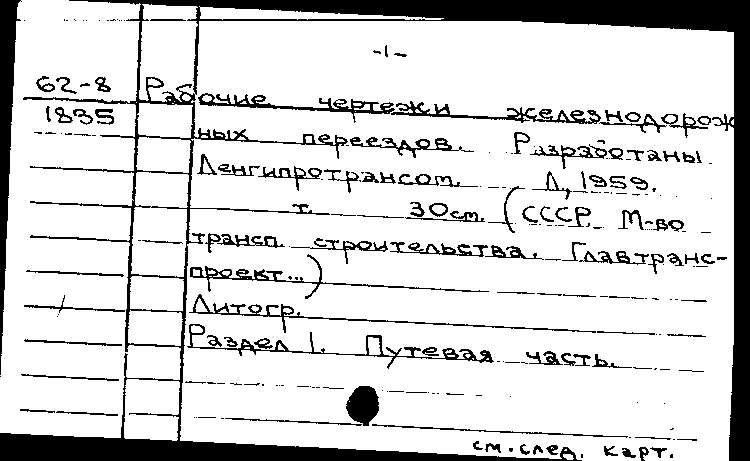 -1-
62-8 Рабочие чертежи железнодорож
1835 ных переездов. Разработаны
Ленгипротрансом. Л., 1959.
т. 30см. (СССР. М-во
трансп. строительства. Главтранс-
проект...)
Литогр.
Раздел 1. Путевая часть.
см. след. карт.